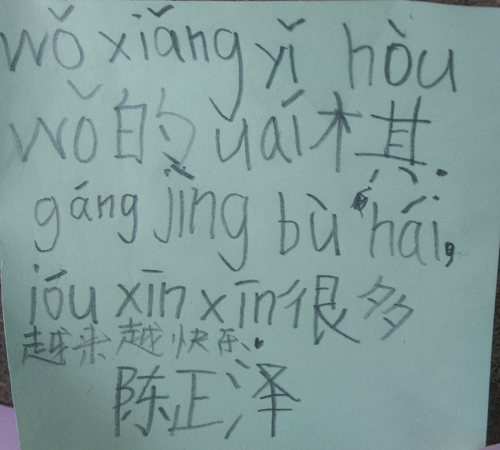 wǒ xiǎng yǐ hòu
wǒ的 uái 棋.
gáng jìng bù hái,
jóu xīn xīn 很多
越来越快乐.
陈正泽